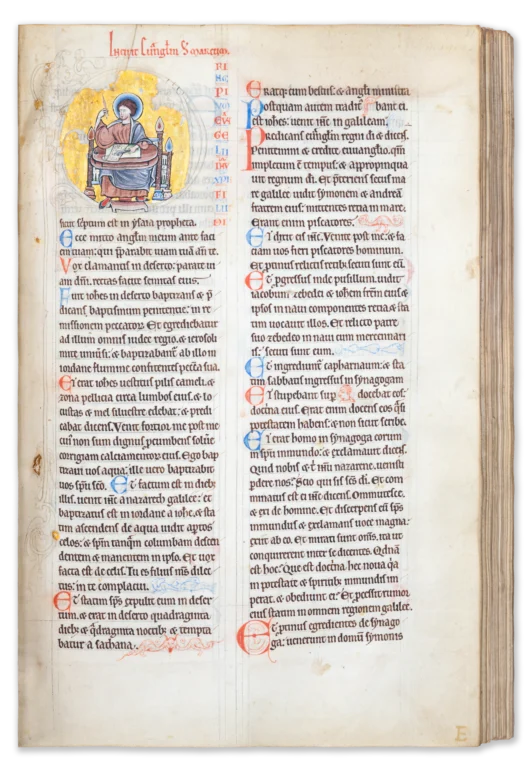 Incipit Eu̅gl̅m S Marcum
INI
PI
EVA
GE
LII
IHV
XPI
FI
LII
DI
sicut scriptum est in ysaia propheta.
Ecce mitto angl̅m meum ante faci
em tuam: qui p̅parabit uiam tuā an̅ te.
Vox clamantis in deserto: parate ui
am dn̅i. rectas facite semitas eius.
Fuit iohes in deserto baptizans & p̅
dicans baptismum penitentie: in re
missionem peccatoꝝ. Et egrediebatur
ad illum omnis iudee regio. & ierosoli
mite uniu̅si: & baptizabant̅ ab illo in
iordane flumine confitentes pc̅c̅ta sua.
Et erat iohes uestitus pilis cameli. &
zona pellicia circa lumbos eius. & lo
custas & mel siluestre edebat: & predi
cabat dicens. Venit fortior me post me
cui̅ non sum dignus p̅cumbens soluere
corrigiam calciamentoꝝ eius. Ego bap
tizaui uos aqua: ille uero baptizabit
uos sp̅u sc̅o. Et factum est in dieb;
illis. uenit ih̅c a nazareth galilee: &
baptizatus est in iordane a iohe. & sta
tim ascendens de aqua uidit aptos
celos: & sp̅m tanqm̅ columbam descen
dentem & manentem in ipso. Et uox
facta est de celis. Tu es filius m̅s dilec
tus: in te complacui.
Et statim sp̅s expulit eum in deser
tum. & erat in deserto quadraginta
dieb; & q̅draginta noctib; & tempta
batur a sathana.
Eratq; cum bestiis: & angl̅i ministra
bant ei.
Postquam autem tradit̅
est iohes: uenit ih̅c in galileam
Predicans eu̅gl̅m regni di̅ & dicens.
Penitemini & credite euuanglio. qm̅
impletum e̅ tempus: & appropinqua
uit regnum di̅. Et p̅teriens secus ma
re galilee uidit symonem & andreā
fratrem eius: mittentes retia in mare.
Erant enim piscatores.
Et dixit eis ih̅c. Venite post me: & fa
ciam uos fieri piscatores hominum.
Et p̅timus relictis retib; secuti sunt eū.
Et p̅gressus inde pusillum. uidit
iacobum zebedei & iohem fr̅m eius &
ipsos in naui componentes retia & sta
tim uocauit illos. Et relicto patre
suo zebedeo in naui cum mercennari
is: secuti sunt eum.
Et ingrediunt̅ capharnaum: & sta
tim sabbatis ingressus in synagogam
docebat eos.
Et stupebant sup̅
doctrina eius. Erat enim docens eos q̅si
potestatem habens: & non sicut scribe.
Et erat homo in synagoga eorum
in sp̅u inmundo: & exclamauit dicens.
Quid nobis & t̅ ih̅u nazarene. uenisti
p̅dere nos? Scio qui sis sc̅s di̅. Et com
minatus est ei ih̅c dicens. Ommutesce.
& exi de homine. Et discerpens eū sp̅s
inmundus & exclamans uoce magna:
exiit ab eo. Et mirati sunt om̅s. ita ut
conquirerent inter se dicentes. Qdn̅a
est hoc? Que est doct̅na hec noua? q̅a
in potestate & spiritib; inmundis im
perat. & obediunt ei? Et p̅cessit rumor
eius statim in omnem regionem galilee.
Et p̅timus egredientes de synago
ga: uenerunt in domū symonis
E